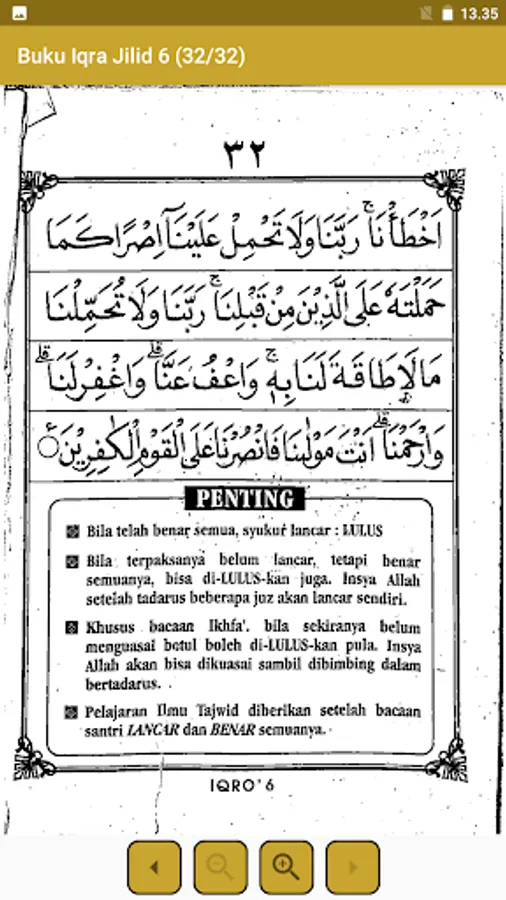 13.35
Buku Iqra Jilid 6 (32/32)
٣٢
اَخْطَأْنَاۚ رَبَّنَا وَلَا تَحْمِلْ عَلَيْنَآ اِصْرًا كَمَا
حَمَلْتَهٗ عَلَى الَّذِيْنَ مِنْ قَبْلِنَاۚ رَبَّنَا وَلَا تُحَمِّلْنَا
مَا لَا طَاقَةَ لَنَا بِهٖۚ وَاعْفُ عَنَّاۗ وَاغْفِرْ لَنَاۗ
وَارْحَمْنَاۗ اَنْتَ مَوْلٰىنَا فَانْصُرْنَا عَلَى الْقَوْمِ الْكٰفِرِيْنَ
PENTING
Bila telah benar semua, syukur lancar : LULUS
Bila terpaksanya belum lancar, tetapi benar
semuanya, bisa di-LULUS-kan juga. Insya Allah
setelah tadarus beberapa juz akan lancar sendiri.
Khusus bacaan Ikhfa'. bila sekiranya belum
menguasai betul boleh di-LULUS-kan pula. Insya
Allah akan bisa dikuasai sambil dibimbing dalam
bertadarus.
Pelajaran Ilmu Tajwid diberikan setelah bacaan
santri LANCAR dan BENAR semuanya.
IQRO' 6